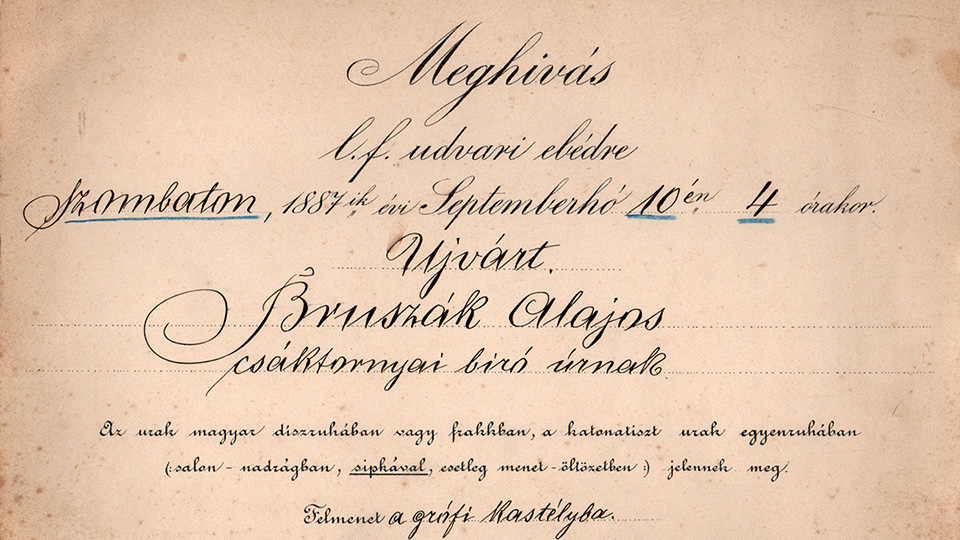 Meghivás
l. f. udvari ebédre
Szombaton, 1887ik évi Septemberhó 10én 4 órakor.
Ujvárt.
Bruszák Alajos
csáktornyai biró úrnak.
Az urak magyar diszruhában vagy frakkban, a katonatiszt urak egyenruhában
(:salon-nadrágban, sipkával, esetleg menet-öltözetben:) jelennek meg.
Felmenet a grófi kastélyba.